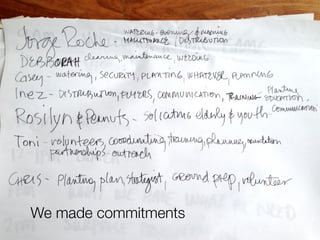 WATERING - EVENING / & MORNING
Jorge Roche - MAINTENANCE / DISTRIBUTION
DEBBORAH cleaning, maintenance, WEEDING
Casey - watering, SECURITY, PLANTING, WHATEVER, PLANNING
Inez - DISTRIBUTION, FLYERS, COMMUNICATION, TRAINING - Planting EDUCATION - Communication
Rosilyn & Peanuts - soliciting elderly & youth
Toni - volunteers, coordinating, training, planning,
partnerships - outreach
CHRIS - Planting plan, strategist, GROUND PREP, volunteer
We made commitments